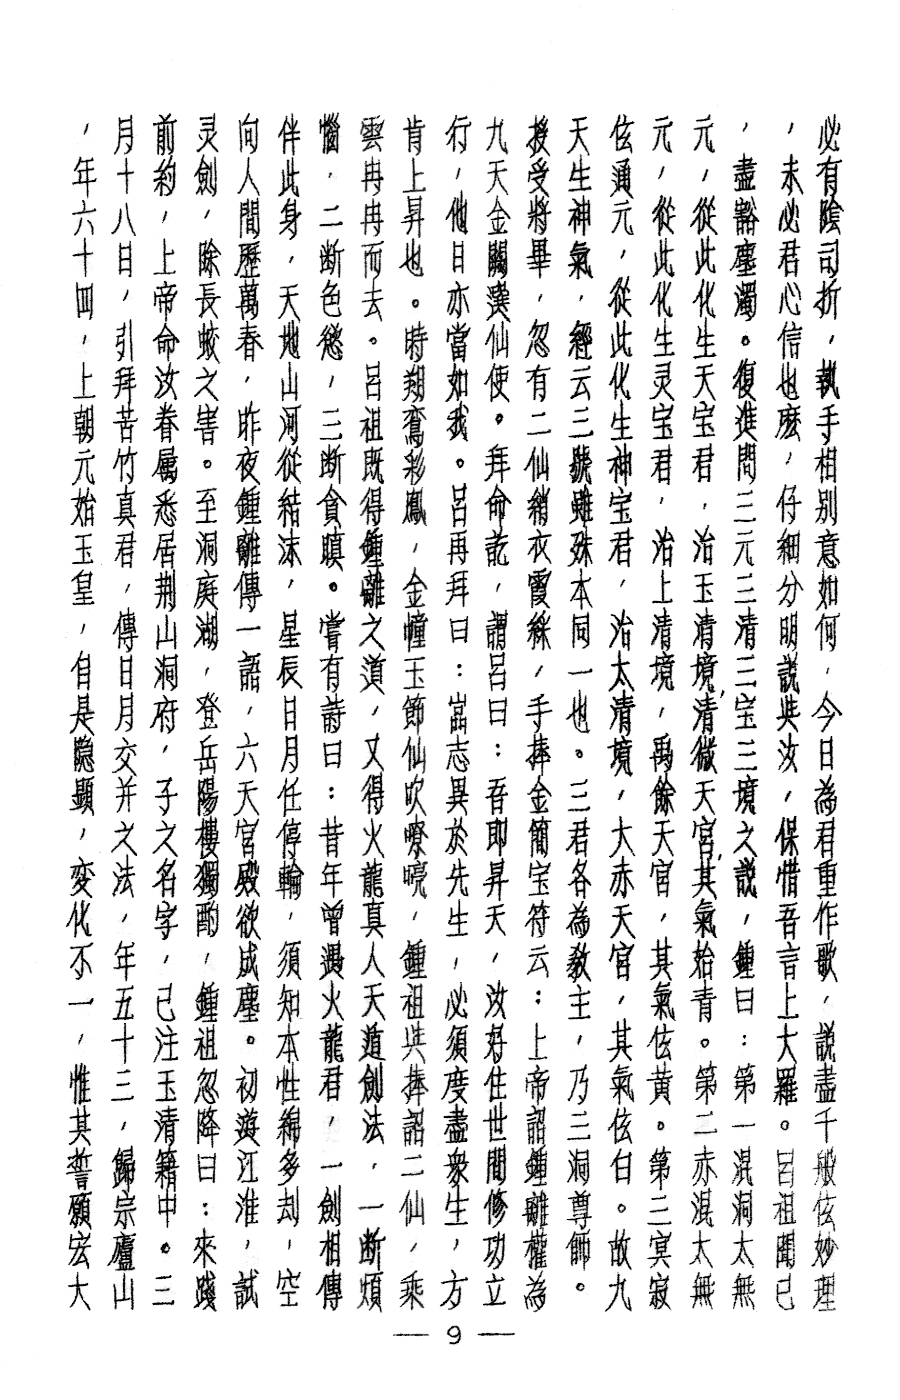 必有陰司折，執手相別意如何，今日為君重作歌，説盡千般伭妙理
，未必君心信也麼，仔細分明説与汝，保惜吾言上大羅。呂祖聞已
，盡豁塵濁。復進問三元三清三宝三境之説，鍾曰：第一混洞太無
元，從此化生天宝君，治玉清境，清微天宮，其氣始青。第二赤混太無
元，從此化生灵宝君，治上清境，禹餘天宮，其氣伭黃。第三冥寂
伭通元，從此化生神宝君，治太清境，大赤天宮，其氣伭白。故九
天生神氣，經云三號雖殊本同一也。三君各為教主，乃三洞尊師。
授受將畢，忽有二仙綃衣霞綵，手捧金簡宝符云：上帝詔鍾離權為
九天金闕選仙使。拜命訖，謂呂曰：吾即昇天，汝好住世間修功立
行，他日亦當如我。呂再拜曰：嵓志異於先生，必須度盡衆生，方
肯上昇也。時翔鸞彩鳳，金幢玉節仙吹嘹喨，鍾祖与捧詔二仙，乘
雲冉冉而去。呂祖既得鍾離之道，又得火龍真人天遁劍法，一断煩
惱，二断色慾，三断貪瞋。嘗有詩曰：昔年曾遇火龍君，一劍相傳
伴此身，天地山河從結沫，星辰日月任停輪，須知本性綿多刧，空
向人間歷萬春，昨夜鍾離傳一語，六天宮殿欲成塵。初遊江淮，試
灵劍，除長蛟之害。至洞庭湖，登岳陽樓獨酌，鍾祖忽降曰：來踐
前約，上帝命汝眷屬悉居荆山洞府，子之名字，已注玉清籍中。三
月十八日，引拜苦竹真君，傳日月交并之法，年五十三，歸宗廬山
，年六十四，上朝元始玉皇，自是隐顯，变化不一，惟其誓願宏大
— 9 —